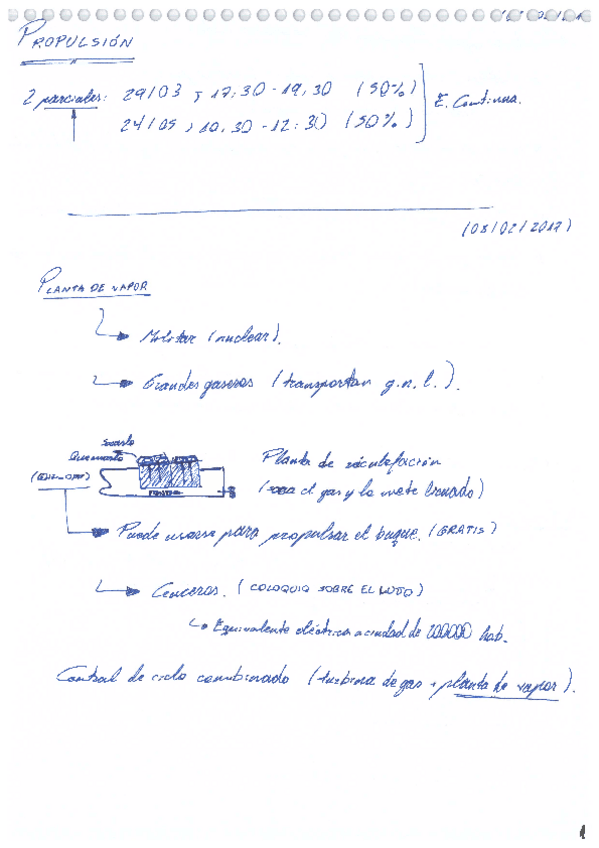 PROPULSIÓN
2 parciales: 29/03, 17:30-19,30 (50%)
24/05, 10,30-12:30 (50%)
E. Continua.
(08/02/2012)
PLANTA DE VAPOR
Militar (nuclear).
Grandes gaseros (transportan g.n.l.).
Planta de
(saca el gas y lo mete licuado)
Puede usarse para propulsar el buque. (GRATIS)
Cruceros. (COLOQUIO SOBRE EL LUJO)
Equivalente eléctrica a ciudad de 200000 hab.
Central de ciclo combinado (turbina de gas + planta de vapor).
1